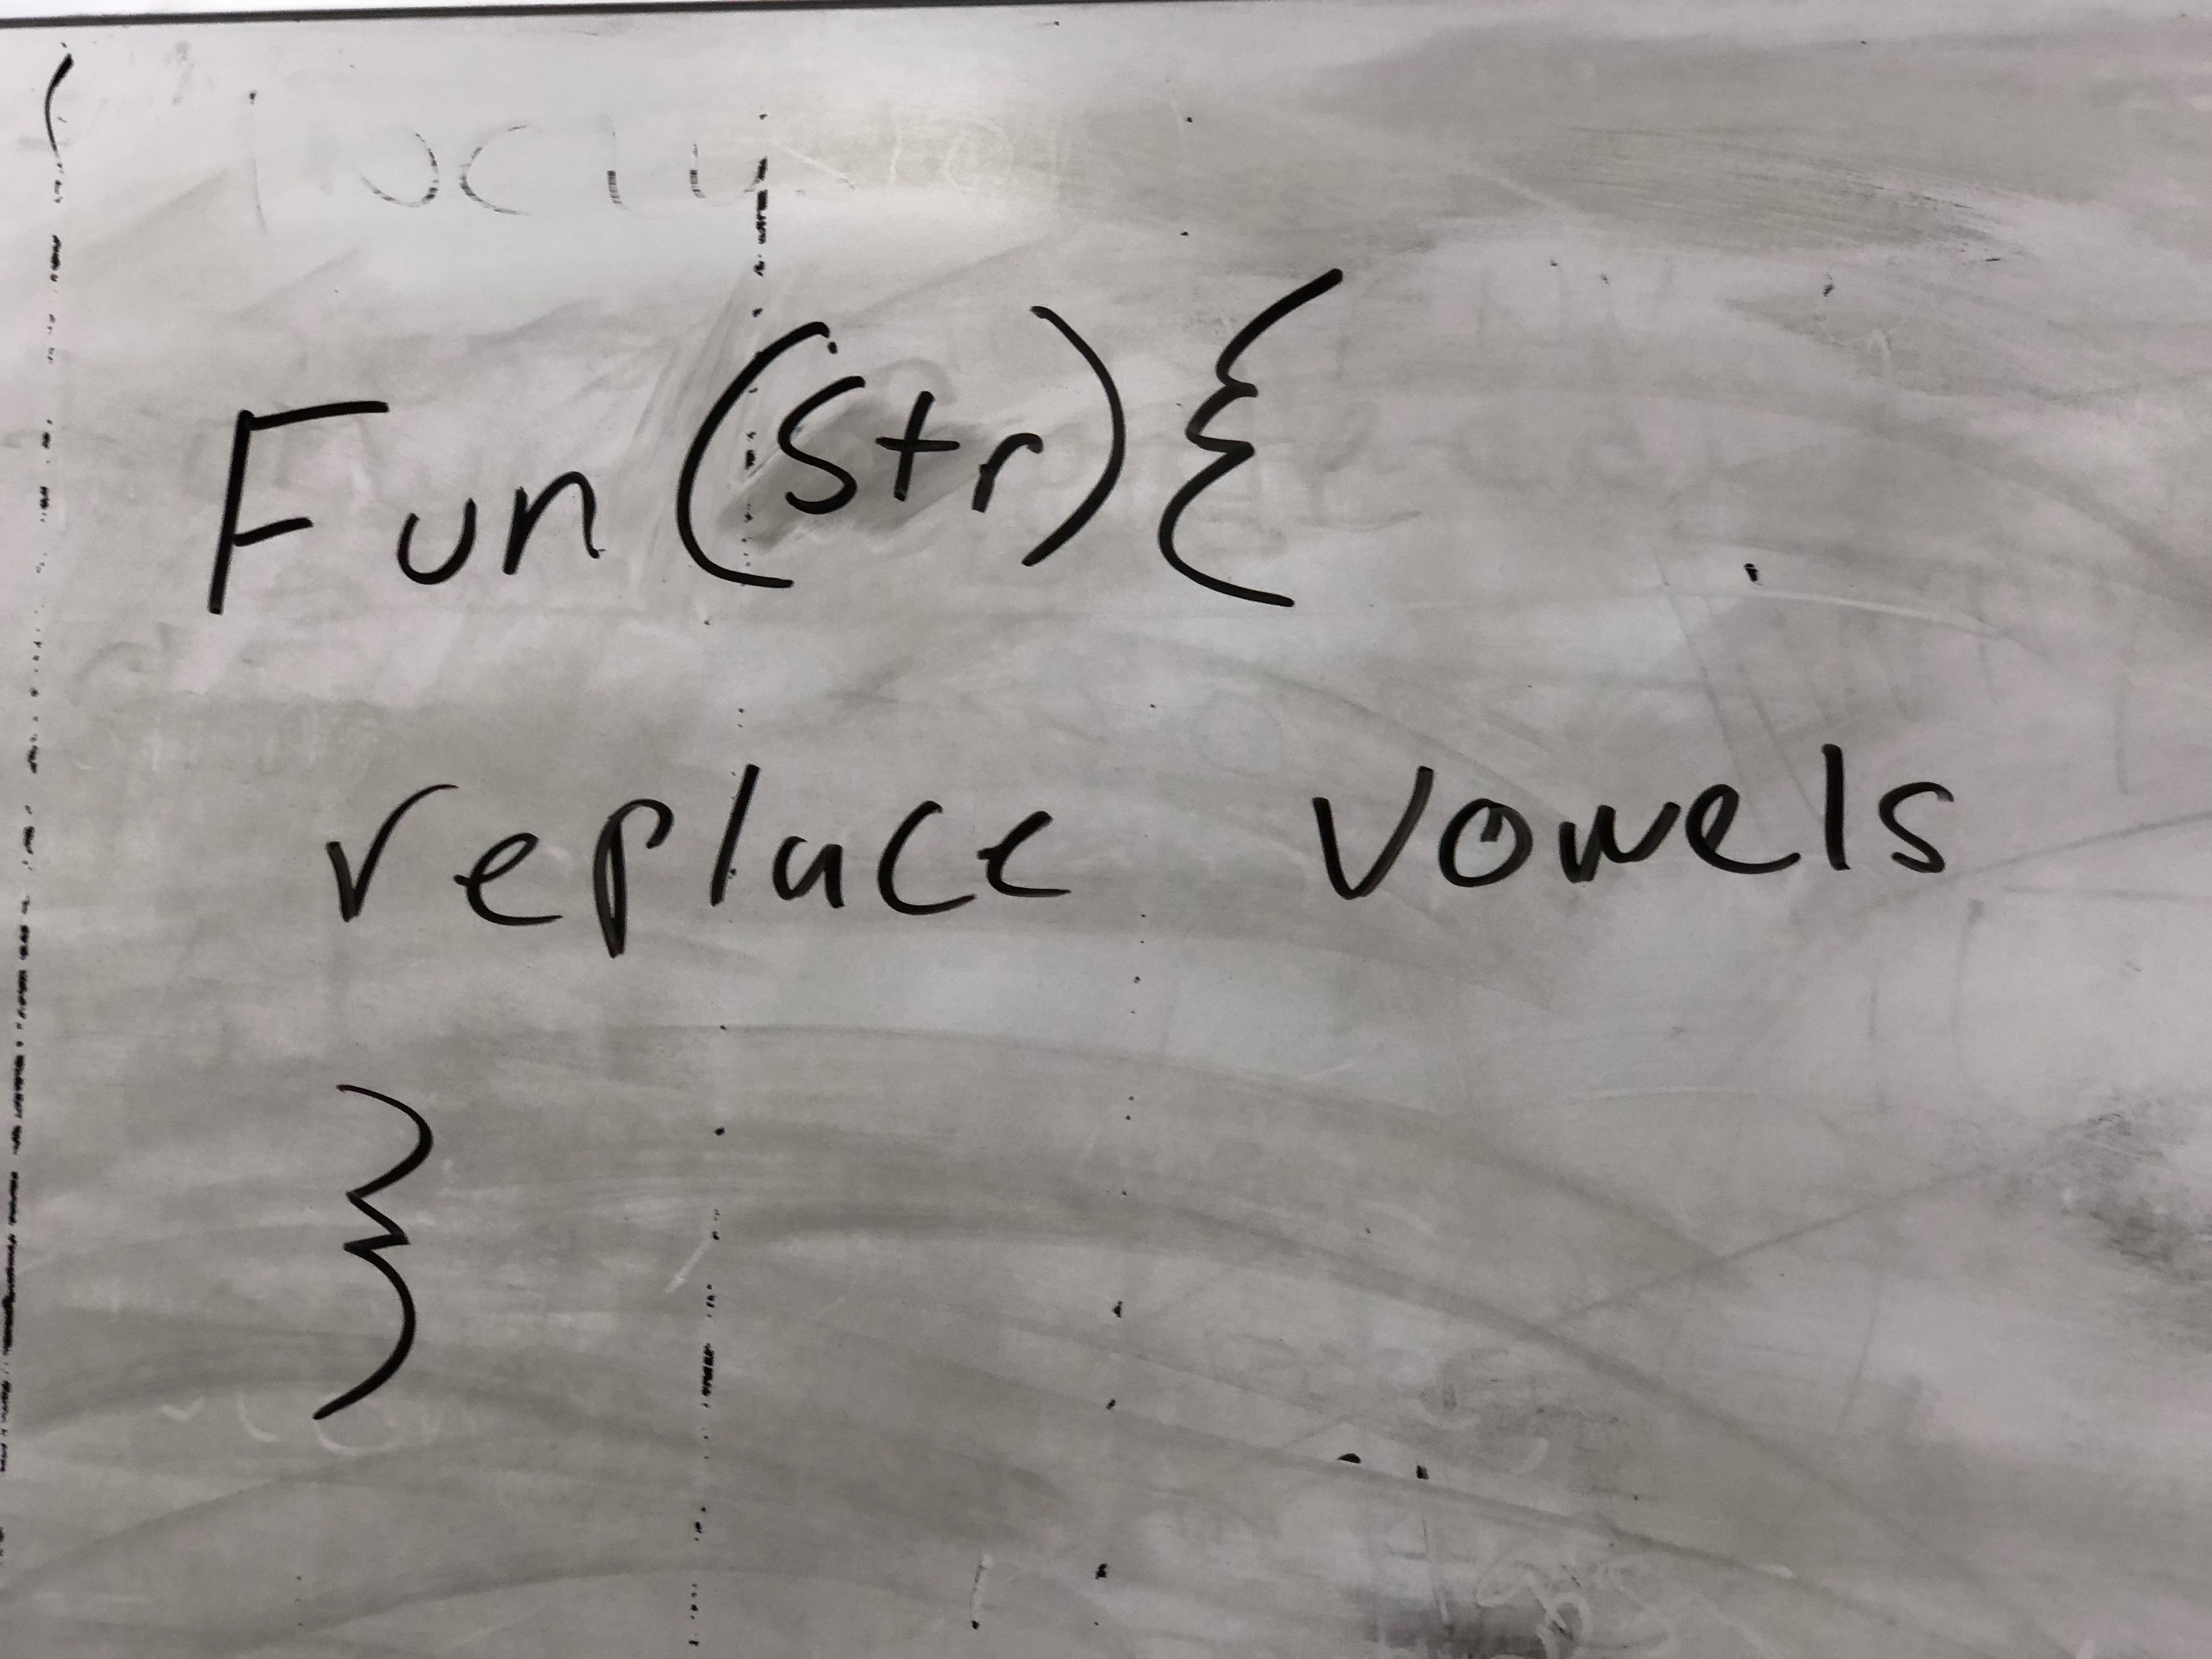 Fun(str){
replace vowels
}